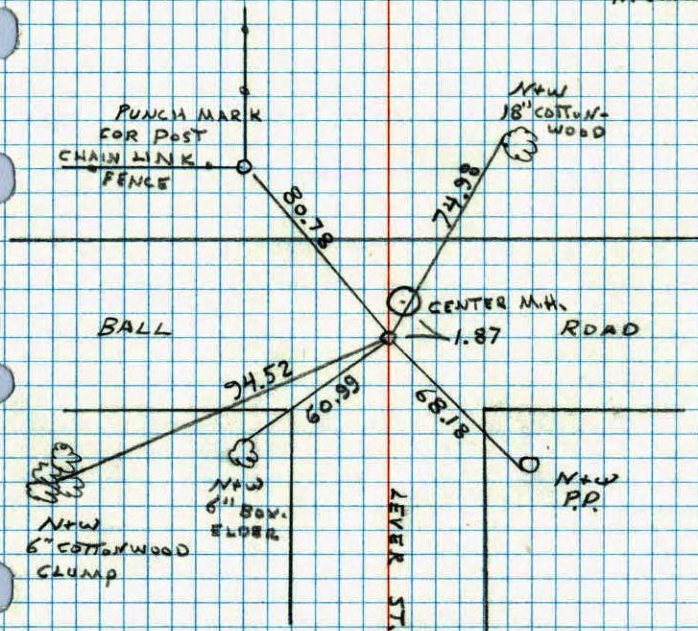 PUNCH MARK
COR POST
CHAIN LINK
FENCE
N+W
18" COTTON-
WOOD
80.78
74.98
CENTER M.H.
1.87
BALL
ROAD
94.52
60.99
68.18
N+W
6" BOX-
ELDER
N+W
P.P.
N+W
6" COTTONWOOD
CLUMP
LEVER ST.